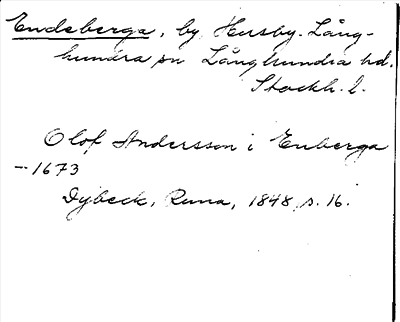 Endeberga, by, Husby-Lång-
hundra sn Långhundra hd.
Stockh. l.
Olof Andersson i Enberga
– 1673
Dybeck, Runa, 1848, s. 16.